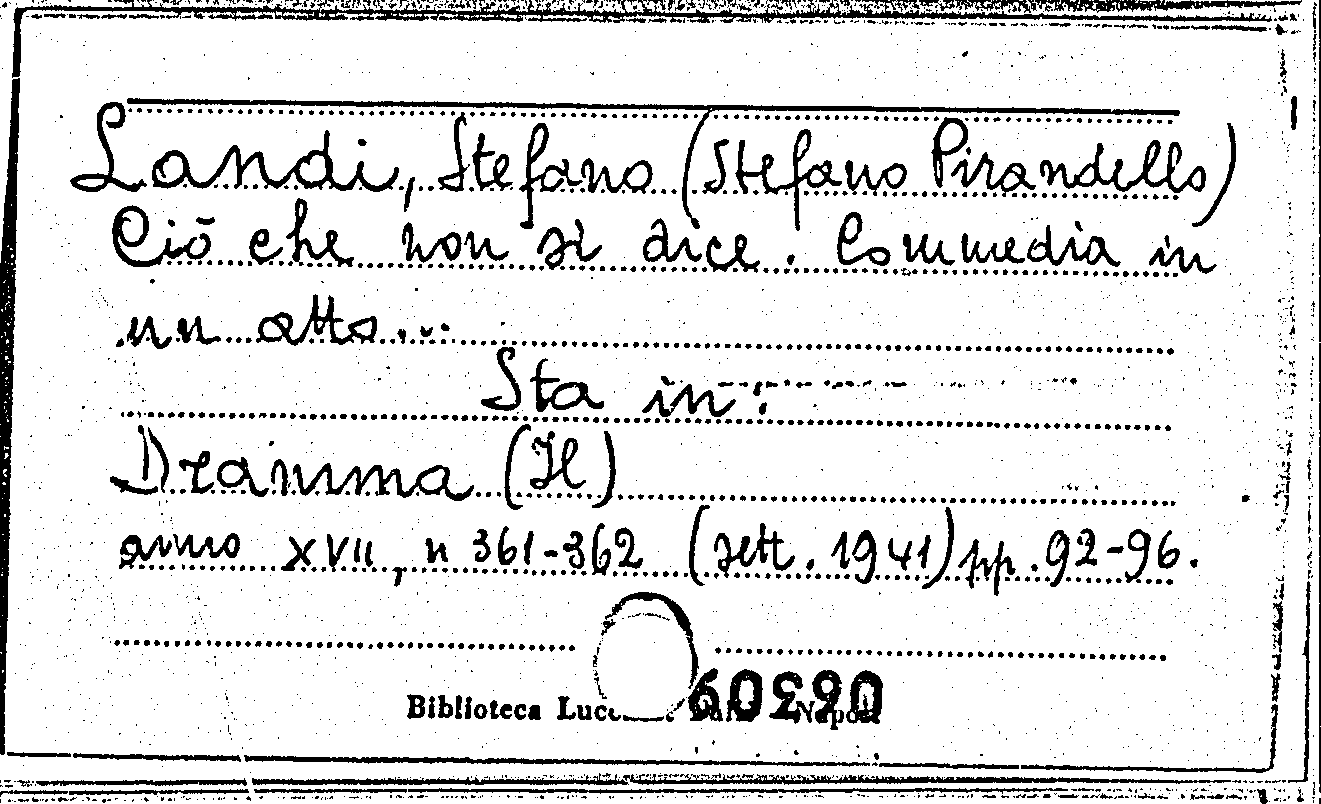 Landi, Stefano (Stefano Pirandello)
Ciò che non si dice. Commedia in
un atto...
Sta in:
Dramma (Il)
anno XVII, n 361-362 (sett. 1941) pp. 92-96.
Biblioteca Napoli